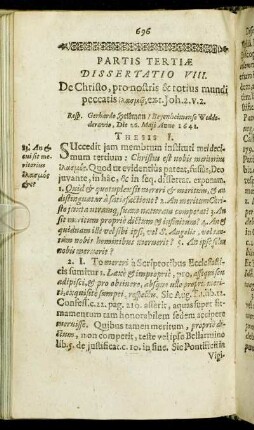 696
PARTIS TERTIÆ
DISSERTATIO VIII.
De Christo, pro nostris & totius mundi
peccatis ἱλασμῷ, ex 1. Joh. 2. v. 2.
Resp. Gerhardo Speckman / Beyenhelmensi
deravio, Die 26. Maji Anno 1641.
THESIS I.
SUccedit jam membrum instituti mei decimum
tertium: Christus est nobis meritorius
ἱλασμός. Quod ut evidentius pateat, fusius, Deo
juvante, in hâc, & in seq. disserta. exponam,
1. Quid & quotuplex sit mereri & meritum, & an
distinguatur à satisfactione? 2. An meritum Christo
3. An
sit meritum propriè dictum & infinitum? 4. An &
quidnam ille vel sibi ipsi, vel S. Angelis, vel tantùm
nobis hominibus meruerit? 5. An ipse solus
nobis meruerit?
2. I. To mereri à Scriptoribus Ecclesiasticis
sumitur 1. Latè et impropriè, pro, assequi seu
adipisci, & pro obtinere, absque ullo propriè
Sic Aug.
Confess. c. 12. pag. 210. asserit, aquas super firmamentum
tam honorabilem sedem accipere
meruisse. Quibus tamen meritum, propriè dictum,
non competit, teste vel ipso Bellarmino
lib. 5. de justificat. c. 10. in fine. Sic Pontificii in
Vigi-